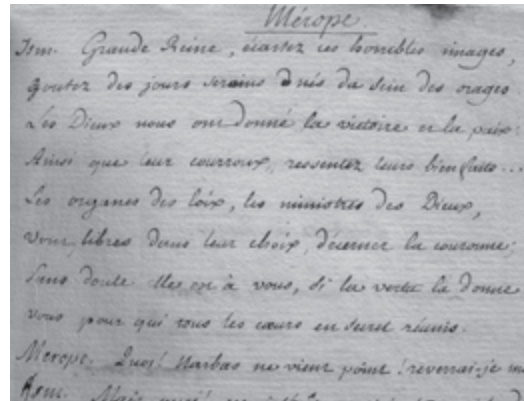 Mérope.
Ism. Grande Reine, écartez ces horribles images,
Goutez des jours serains nés du sein des orages:
Les Dieux nous ont donné la victoire et la paix:
Ainsi que leur courroux, ressentez leurs bienfaits...
Les organes des loix, les ministres des Dieux,
vont, libres dans leur choix, décerner la couronne;
Sans doute elle est à vous, si la vertu la donne
vous pour qui tous les cœurs en secret réunis.
Merope. Quoi! Narbas ne vient point! reverrai-je
Ism. Mais